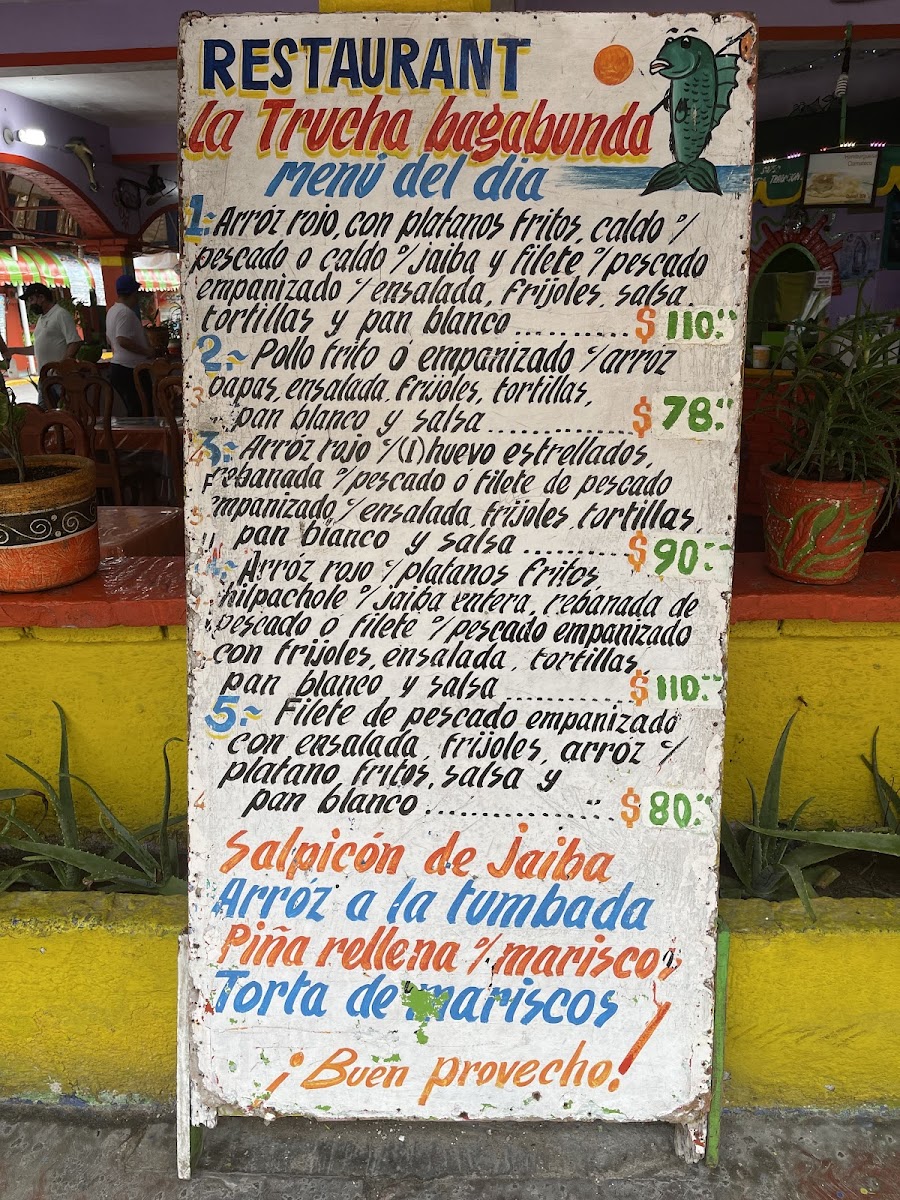 RESTAURANT
La Trucha bagabunda
Menú del día
1.~ Arróz rojo, con platanos fritos, caldo º/
pescado o caldo º/jaiba y filete º/pescado
empanizado c/ensalada, frijoles, salsa,
tortillas y pan blanco .......... $ 110.""
2.~ Pollo frito ó empanizado c/arroz
papas, ensalada, frijoles, tortillas,
pan blanco y salsa ............. $ 78.""
3.~ Arróz rojo c/(1) huevo estrellados,
rebanada º/pescado ó filete de pescado
empanizado c/ensalada, frijoles, tortillas,
pan blanco y salsa .......... $ 90.""
4.~ Arróz rojo c/platanos fritos,
chilpachole º/jaiba entera, rebanada de
pescado ó filete º/pescado empanizado
con frijoles, ensalada, tortillas,
pan blanco y salsa ........... $ 110.""
5.~ Filete de pescado empanizado
con ensalada, frijoles, arróz c/
platano fritos, salsa y
pan blanco .................. $ 80.""
Salpicón de jaiba
Arróz a la tumbada
Piña rellena º/mariscos
Torta de mariscos
¡Buen provecho!